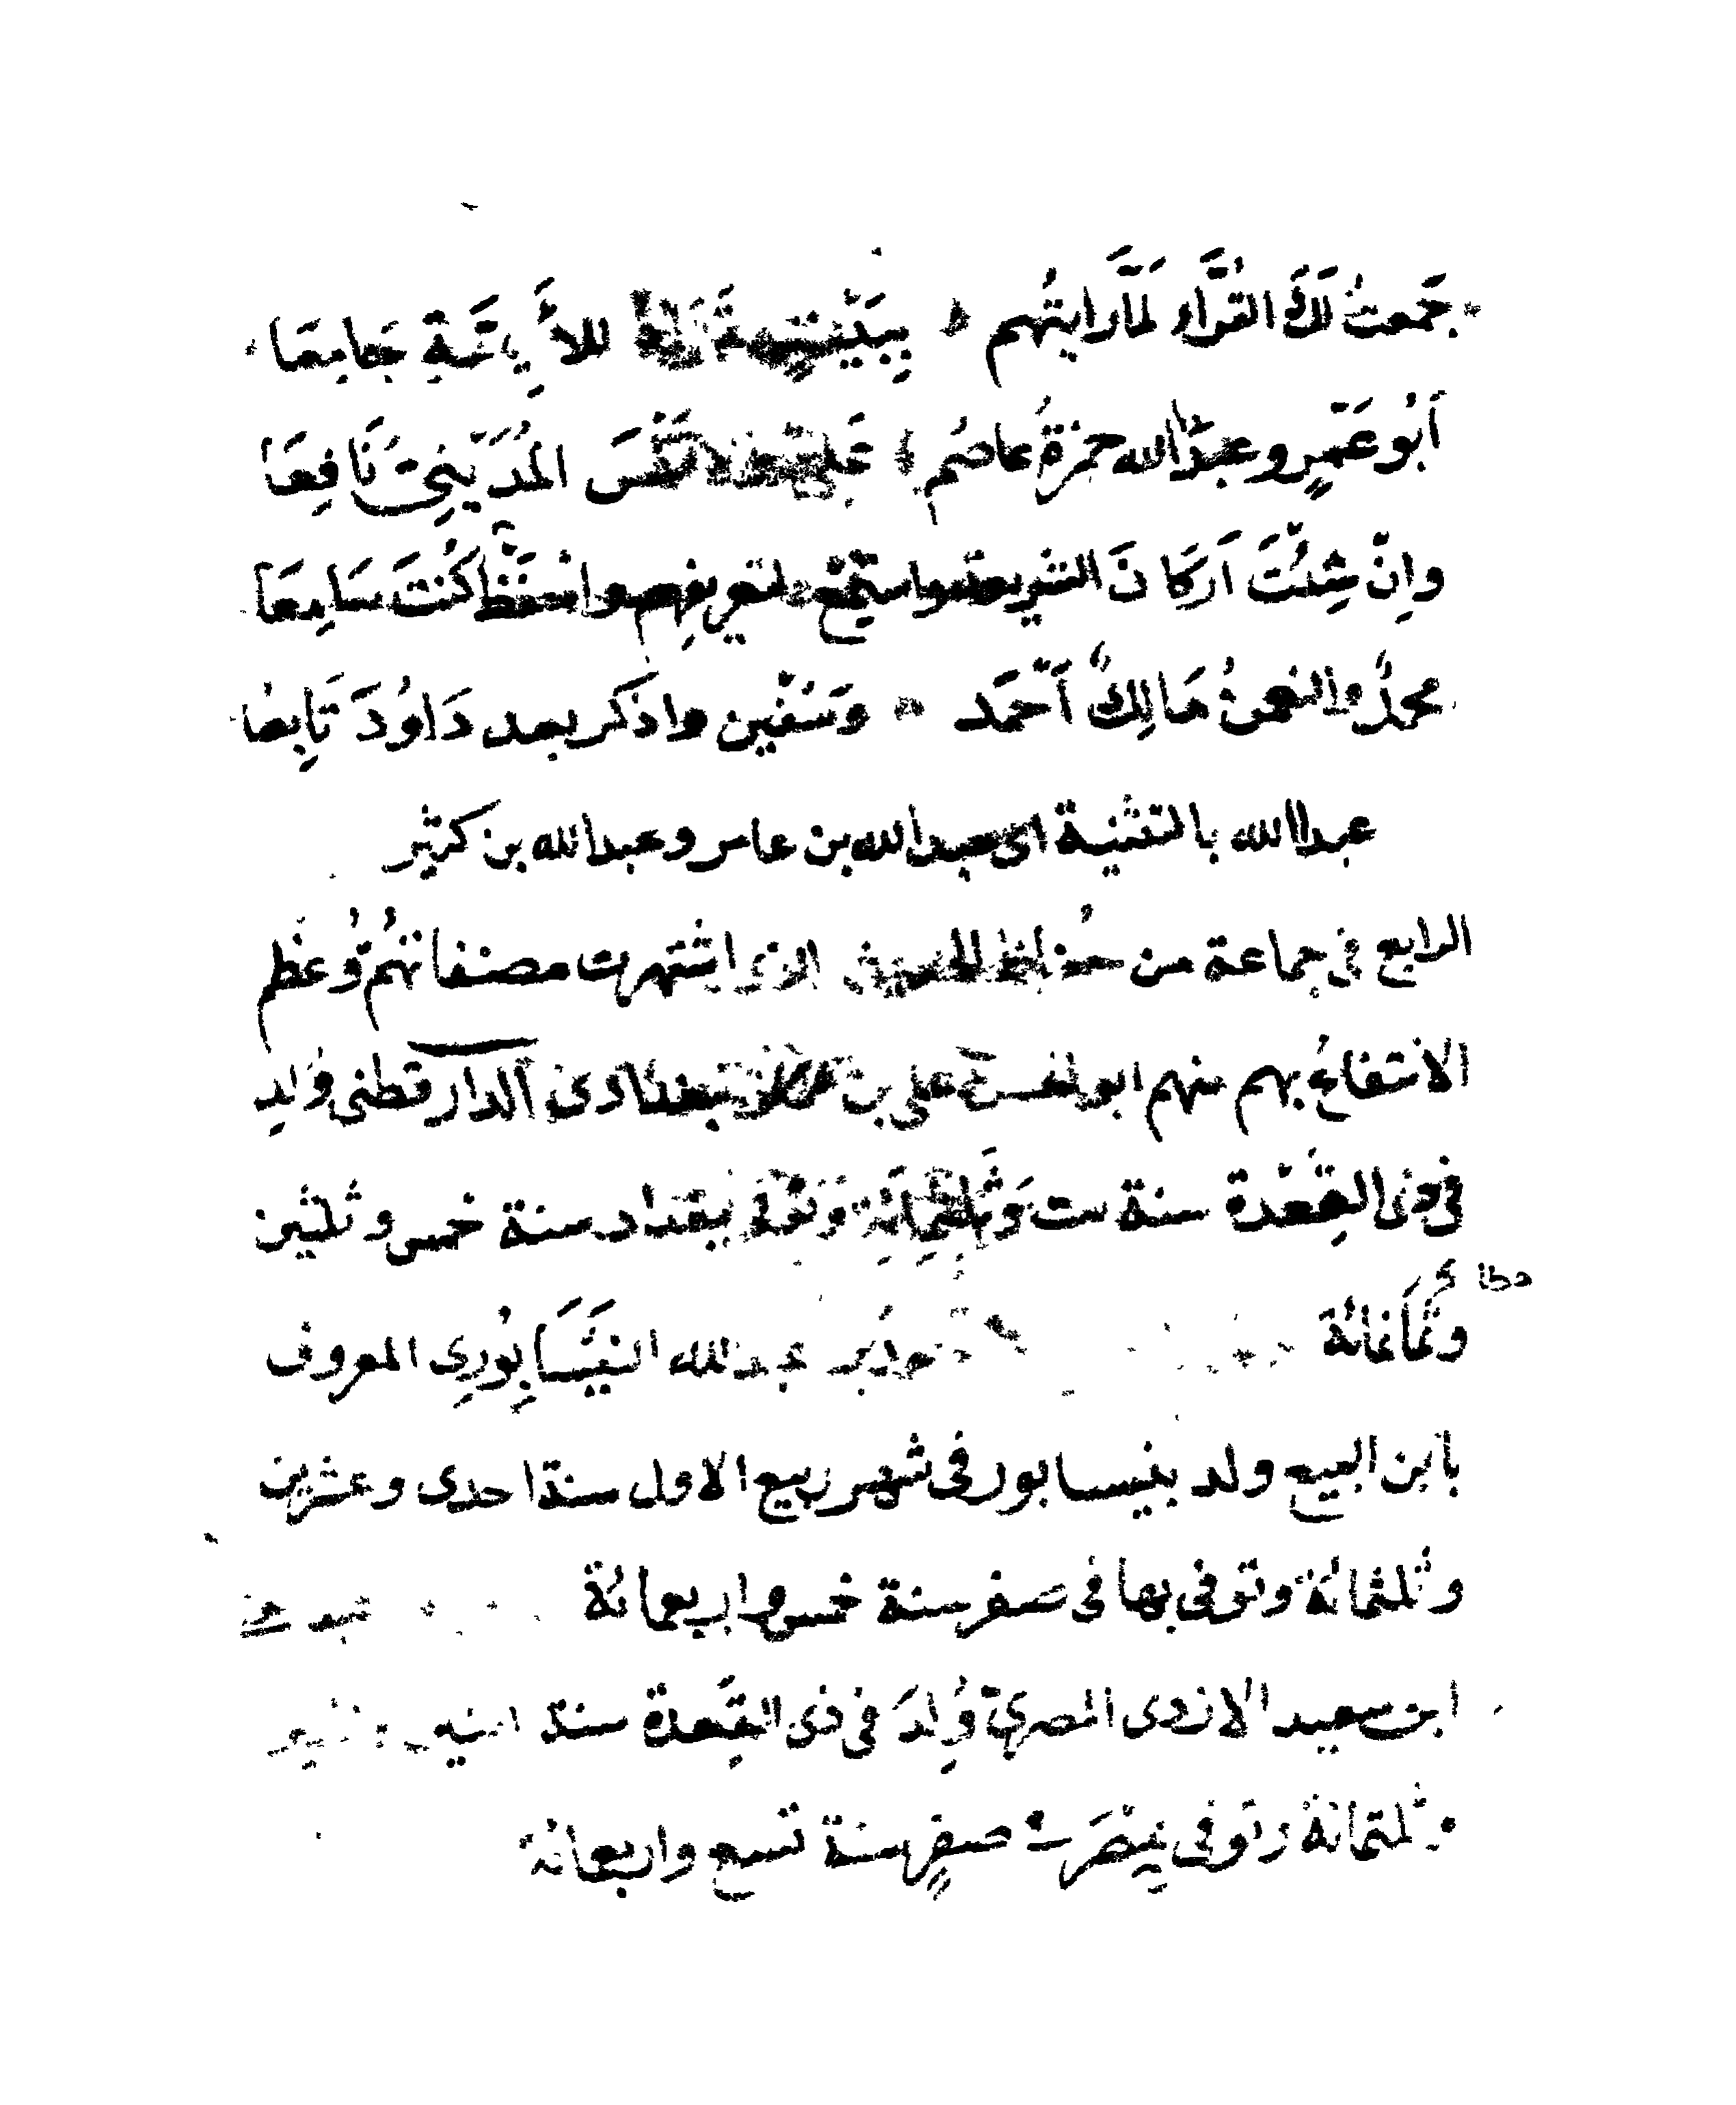 جَمعتُ لَكَ القُرَّاءَ لمَّا رايتُهم بِبَيْتٍ تَرَاهُ للأَيِمَّةِ جَامِعَا
اَبُو عَمْرٍو وعبدُ الله حمزةُ عاصُم المُدَيْنِيَّ نَافِعَا
واِنْ شِئْتَ اَركَانَ الشريعة واستمِعْ لتعريفِهم واحفَظْ اِذَا كُنْتَ سَامِعَا
محمدٌ والنعمنُ مَالِكٌ اَحْمَد وَسُفْين واذكر بعد دَاوُدَ تَابِعَا
عبدا الله بالتثنية اى عبدالله بن عامر وعبدالله بن كثير
الرابع فى جماعة من حُفاظ الحديث الذى اشتهرت مصنفاتهُم وُعظم
الانتفاعُ بهم منهم ابو الحسن على بن البغدادى الدارقطنى وُلِد
فى ذى القِعْدة سنة ست وَثَلثمِايَةِ وَتُوُفى ببغداد سنة خمس وثلثين
وثَمانمائة عبدالله النَيْسَابُورِى المعروف
بابن البيع ولد بنيسابور فى شهر ربيع الاول سنة احدى وعشرين
وثلثمائة وتوفى بها فى صفر سنة خمس واربعمائة
ابن سعيد الازدى المصرىّ وُلِدَ فى ذى القِعدة سنة
وثلثمائة وتوفى بمِصْرَ صفرٍ سنة تسع واربعمائة